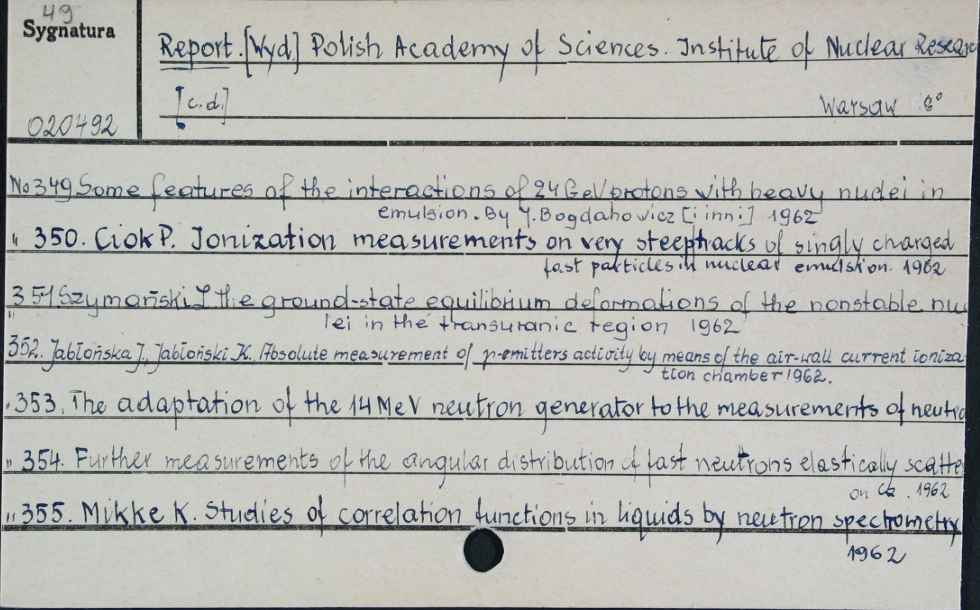 49
Sygnatura
020492
Report. [Wyd] Polish Academy of Sciences. Institute of Nuclear Resear
[c.d.]
Warsaw 8°
No 349 Some features of the interactions of 24 GeV protons with heavy nuclei in
emulsion. By J. Bogdahowicz [i inni] 1962
" 350. Ciok P. Jonization measurements on very steeptracks of singly charged
fast particles in nuclear emulsion. 1962
351 Szymański Z the ground-state equilibrium deformations of the nonstable nu
"
lei in the transuranic region 1962
352. Jabłońska J., Jabłoński K. Absolute measurement of β-emitters activity by means of the air-wall current ioniza
tion chamber 1962.
" 353. The adaptation of the 14 MeV neutron generator to the measurements of neutro
" 354. Further measurements of the angular distribution of fast neutrons elastically scatte
on Ca. 1962
" 355. Mikke K. Studies of correlation functions in liquids by neutron spectrometry
1962